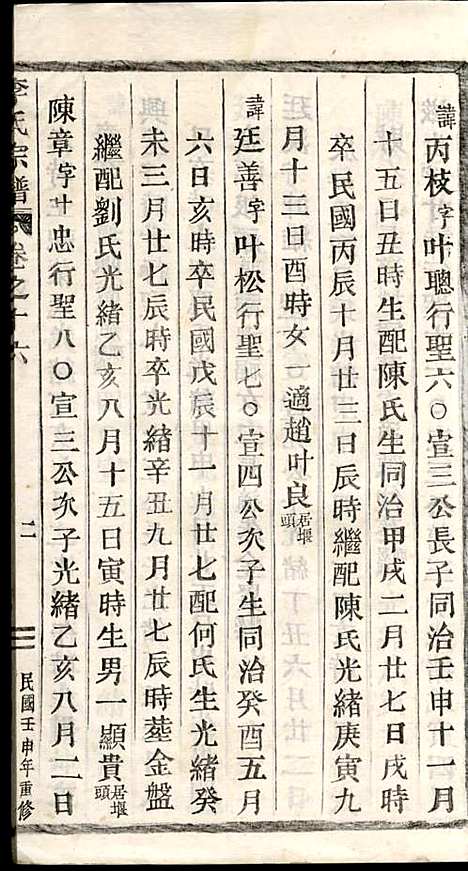 諱丙枝字叶聰行聖六〇宣三公長子同治壬申十一月
十五日丑時生配陳氏生同治甲戌二月廿七日戌時
卒民國丙辰十月廿三日辰時繼配陳氏光緒庚寅九
月十三日酉時女一適趙叶良居堰頭
諱廷善字叶松行聖七〇宣四公次子生同治癸酉五月
六日亥時卒民國戊辰十一月廿七配何氏生光緒癸
未三月廿七辰時卒光緒辛丑九月廿七辰時墓金盤
繼配劉氏光緒乙亥八月十五日寅時生男一顯貴居堰頭
陳章字叶忠行聖八〇宣三公次子光緒乙亥八月二日
李氏宗譜 卷之十六
二
民國壬申年重修